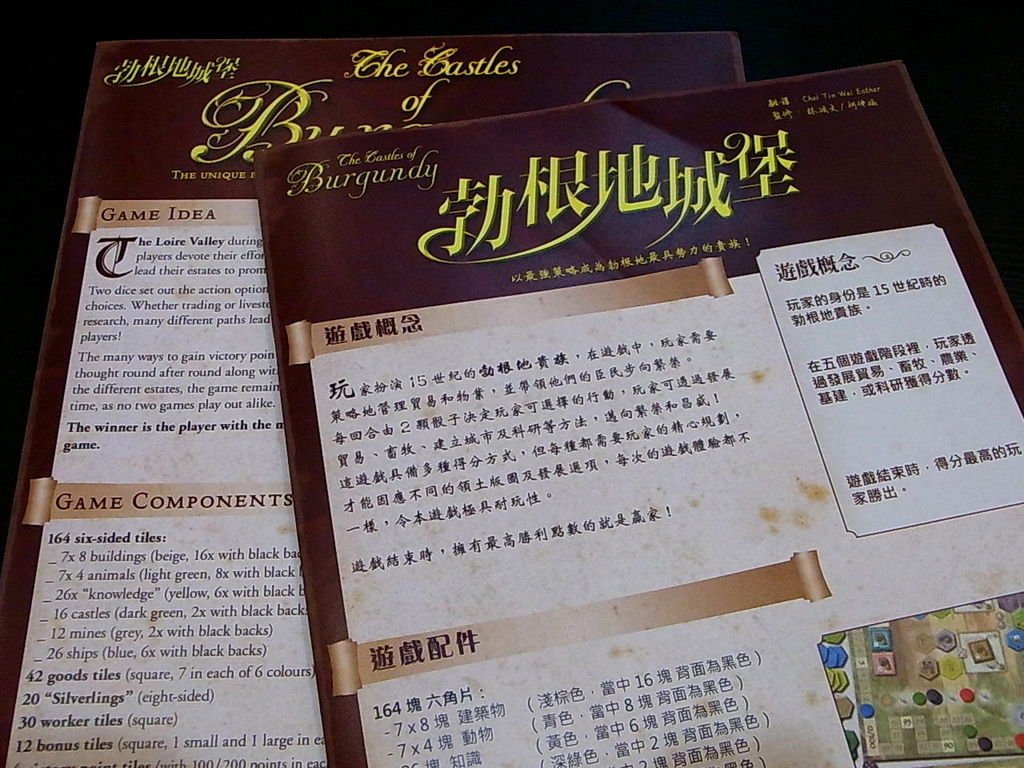 勃根地城堡
The Castles
of
THE UNIQUE
GAME IDEA
The Loire Valley during
players devote their effor
lead their estates to prom
Two dice set out the action option
choices. Whether trading or livesto
research, many different paths lead
players!
The many ways to gain victory poin
thought round after round along wit
the different estates, the game remain
time, as no two games play out alike.
The winner is the player with the m
game.
GAME COMPONENTS
164 six-sided tiles:
_ 7x 8 buildings (beige, 16x with black ba
_ 7x 4 animals (light green, 8x with black
_ 26x “knowledge” (yellow, 6x with black b
_ 16 castles (dark green, 2x with black back
_ 12 mines (grey, 2x with black backs)
_ 26 ships (blue, 6x with black backs)
42 goods tiles (square, 7 in each of 6 colours)
20 “Silverlings” (eight-sided)
30 worker tiles (square)
12 bonus tiles (square, 1 small and 1 large in ea
(with 100/200 points in each
The Castles of
Burgundy
勃根地城堡
以最強策略成為勃根地最具勢力的貴族！
翻譯 Choi Tin Wai Esther
遊戲概念
玩家扮演 15 世紀的勃根地貴族，在遊戲中，玩家需要
策略地管理貿易和物業，並帶領他們的臣民步向繁榮。
每回合由 2 顆骰子決定玩家可選擇的行動，玩家可透過發展
貿易、畜牧、建立城市及科研等方法，邁向繁榮和昌盛！
這遊戲具備多種得分方式，但每種都需要玩家的精心規劃，
才能因應不同的領土版圖及發展選項，每次的遊戲體驗都不
一樣，令本遊戲極具耐玩性。
遊戲結束時，擁有最高勝利點數的就是贏家！
遊戲概念
玩家的身份是 15 世紀時的
勃根地貴族。
在五個遊戲階段裡，玩家透
過發展貿易、畜牧、農業、
基建、或科研獲得分數。
遊戲結束時，得分最高的玩
家勝出。
遊戲配件
164 塊 六角片：
- 7 x 8 塊 建築物 （淺棕色，當中 16 塊 背面為黑色）
- 7 x 4 塊 動物 （青色，當中 8 塊 背面為黑色）
塊 知識 （黃色，當中 6 塊 背面為黑色）
（深綠色，當中 2 塊 背面為黑色）